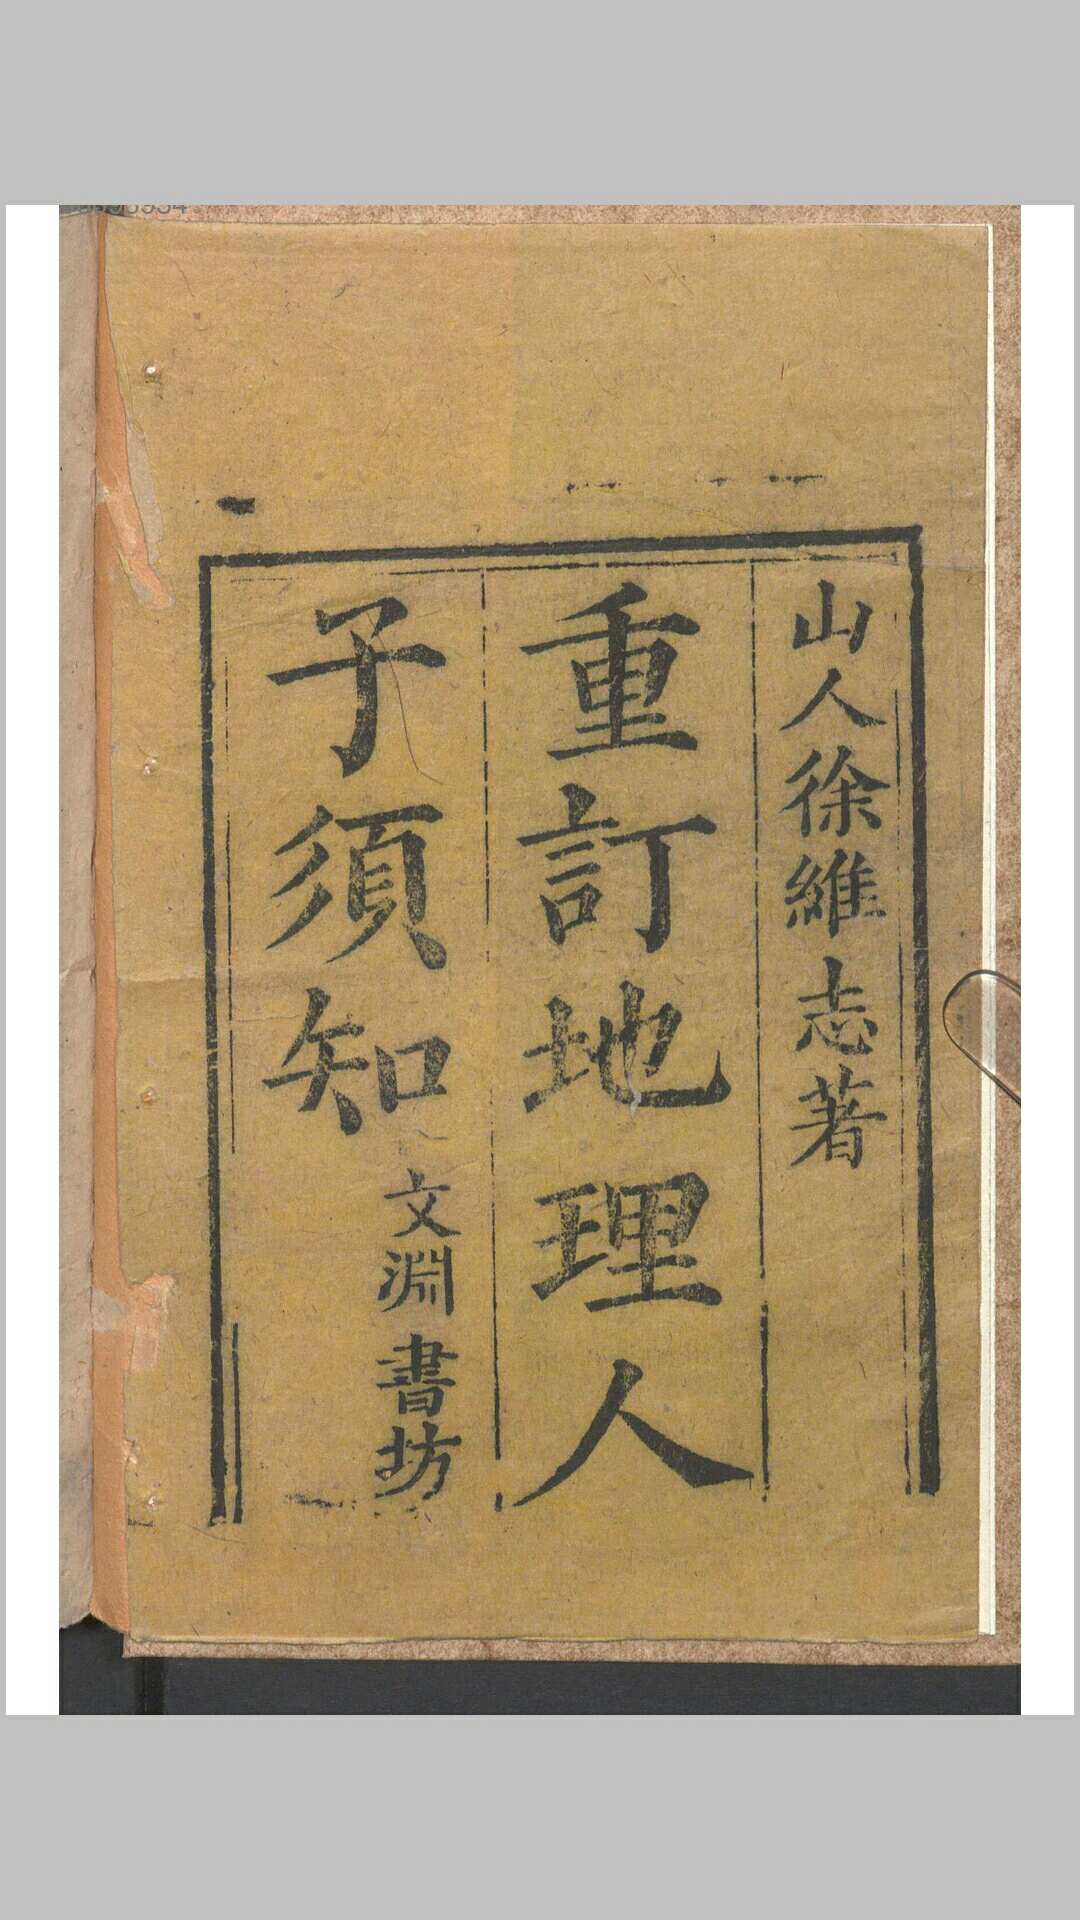 山人徐維志著
重訂地理人
子須知
文淵書坊